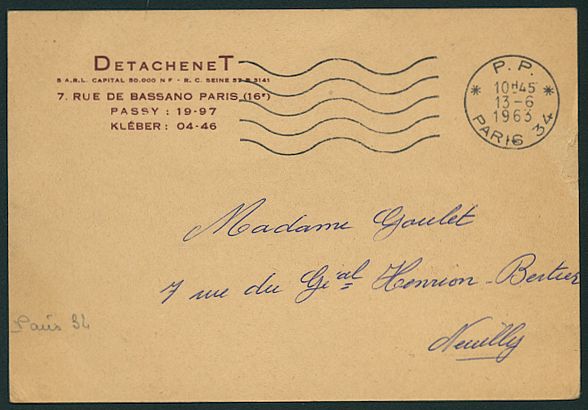 DETACHENET
S.A.R.L. CAPITAL 50.000 N F - R. C. SEINE 57 B 3141
7. RUE DE BASSANO PARIS (16e)
PASSY : 19-97
KLÉBER : 04-46
P.P.
* 10H45 *
13-6
1963
PARIS 34
Madame Goulet
7 rue du Gial Henrion-Bertier
Neuilly
Paris 34